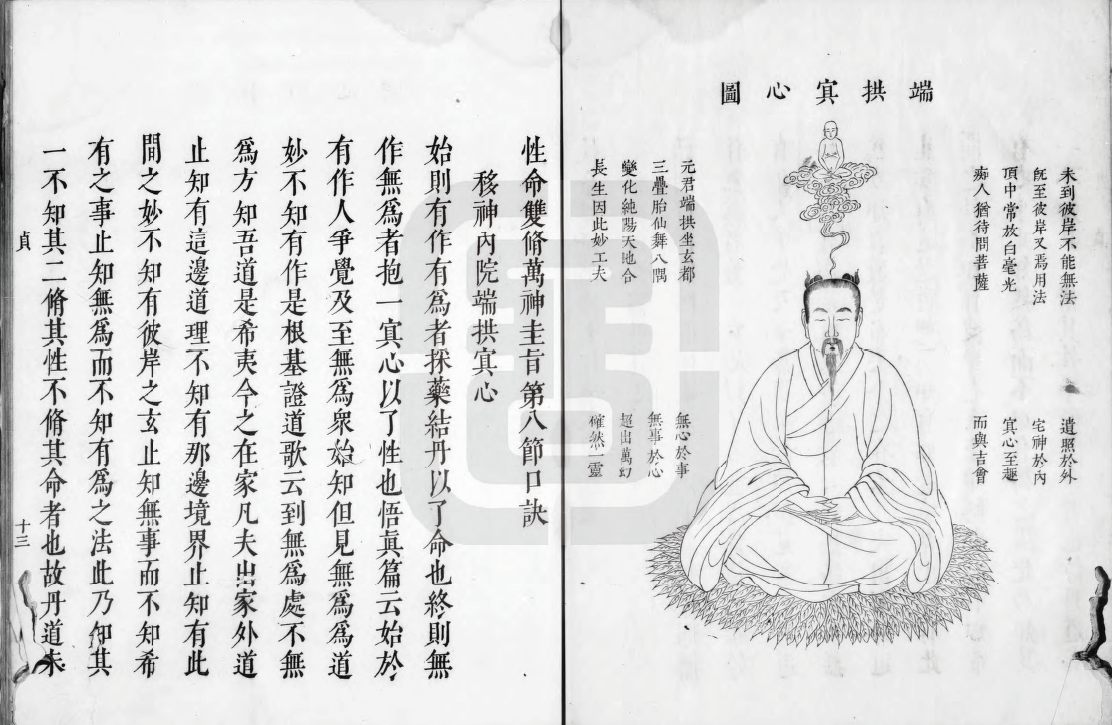 端拱㝠心圖
未到彼岸不能無法
旣至彼岸又焉用法
頂中常放白毫光
痴人猶待問菩薩
遣照於外
宅神於內
㝠心至趣
而與吉會
元君端拱坐玄都
三疊胎仙舞八隅
變化純陽天地合
長生因此妙工夫
無心於事
無事於心
超出萬幻
確然一靈
性命雙脩萬神圭旨第八節口訣
移神內院端拱㝠心
始則有作有爲者採藥結丹以了命也終則無
作無爲者抱一㝠心以了性也悟眞篇云始於
有作人爭覺及至無爲衆始知但見無爲爲道
妙不知有作是根基證道歌云到無爲處不無
爲方知吾道是希夷今之在家凡夫出家外道
止知有這邊道理不知有那邊境界止知有此
間之妙不知有彼岸之玄止知無事而不知希
有之事止知無爲而不知有爲之法此乃知其
一不知其二脩其性不脩其命者也故丹道未
貞
十三